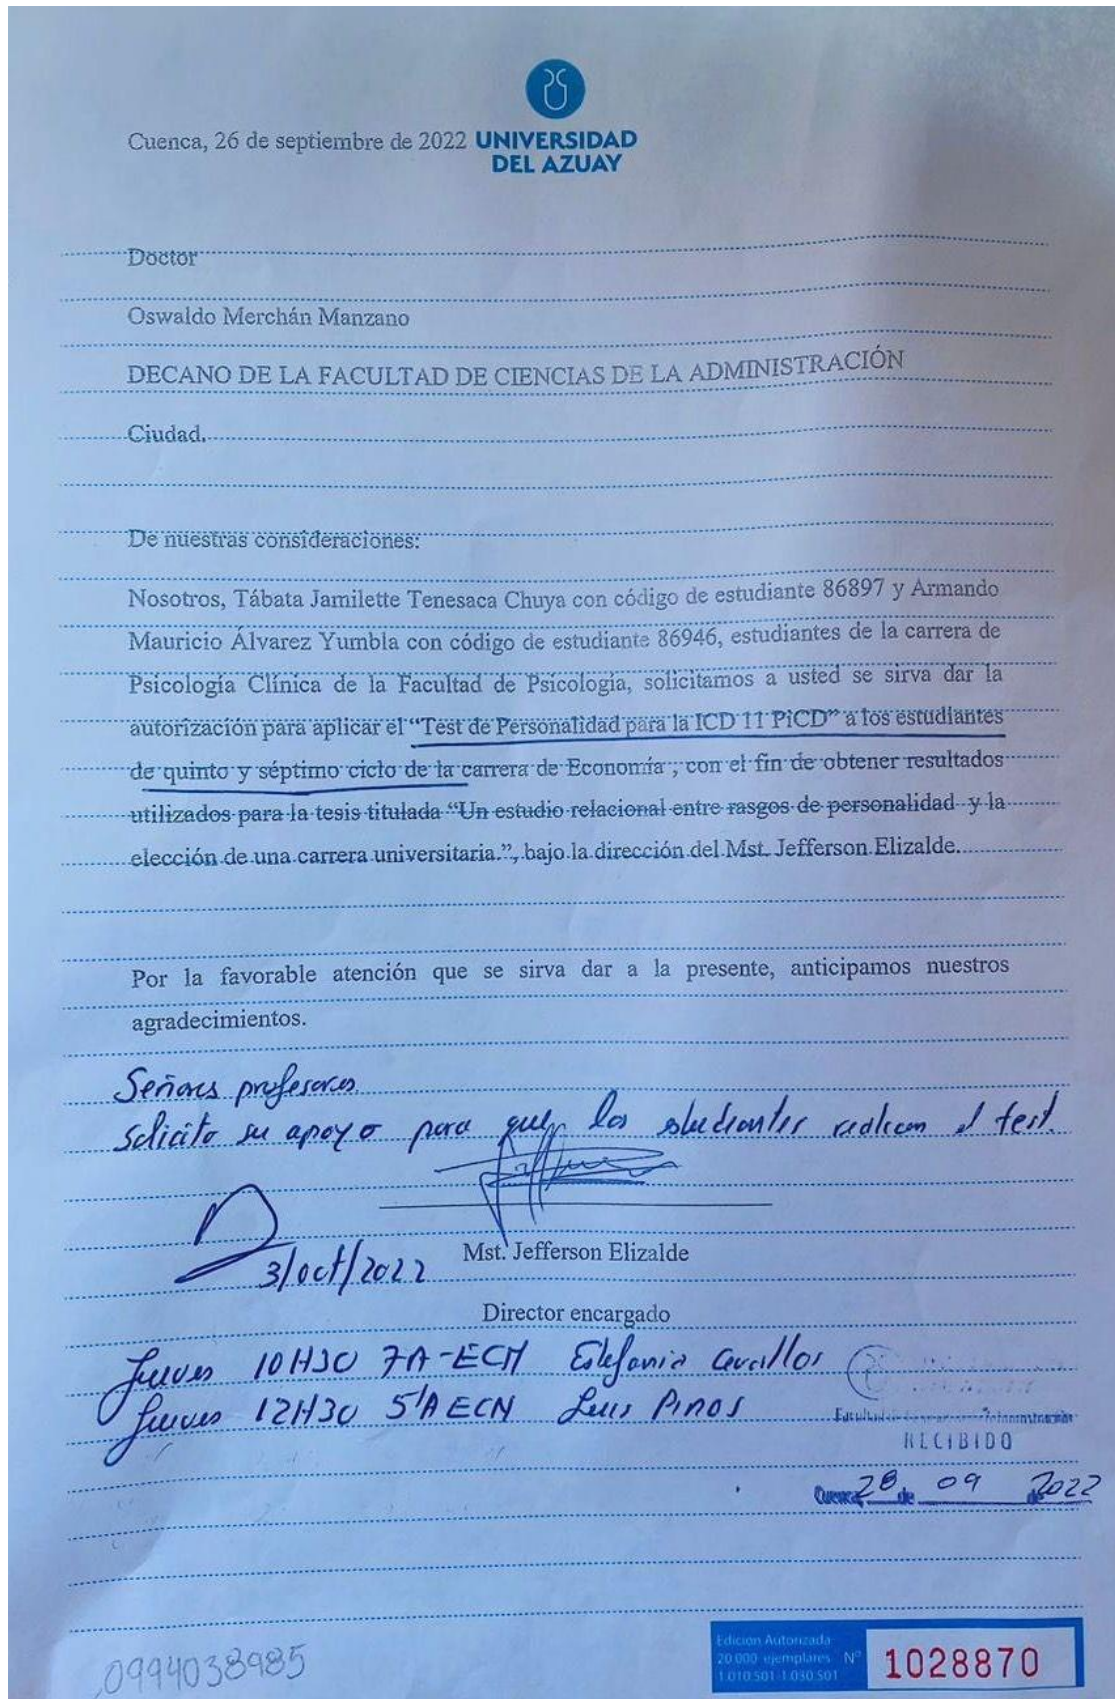 Cuenca, 26 de septiembre de 2022
UNIVERSIDAD
DEL AZUAY
Doctor
Oswaldo Merchán Manzano
DECANO DE LA FACULTAD DE CIENCIAS DE LA ADMINISTRACIÓN
Ciudad.
De nuestras consideraciones:
Nosotros, Tábata Jamilette Tenesaca Chuya con código de estudiante 86897 y Armando
Mauricio Álvarez Yumbla con código de estudiante 86946, estudiantes de la carrera de
Psicología Clínica de la Facultad de Psicología, solicitamos a usted se sirva dar la
autorización para aplicar el “Test de Personalidad para la ICD 11 PiCD” a los estudiantes
de quinto y séptimo ciclo de la carrera de Economía , con el fin de obtener resultados
utilizados para la tesis titulada “Un estudio relacional entre rasgos de personalidad y la
elección de una carrera universitaria.”, bajo la dirección del Mst. Jefferson Elizalde.
Por la favorable atención que se sirva dar a la presente, anticipamos nuestros
agradecimientos.
Señores profesores
Solicito su apoyo para que los estudiantes realicen el test.
3/oct/2022
Mst. Jefferson Elizalde
Director encargado
Jueves 10H30 7A-ECN Estefania Cevallos
Jueves 12H30 5'A ECN Luis Pinos
Facultad Administración
RECIBIDO
Cuenca, 28 de 09 de 2022
0994038985
Edición Autorizada
20.000 ejemplares Nº
1.010.501 1.030.501
1028870